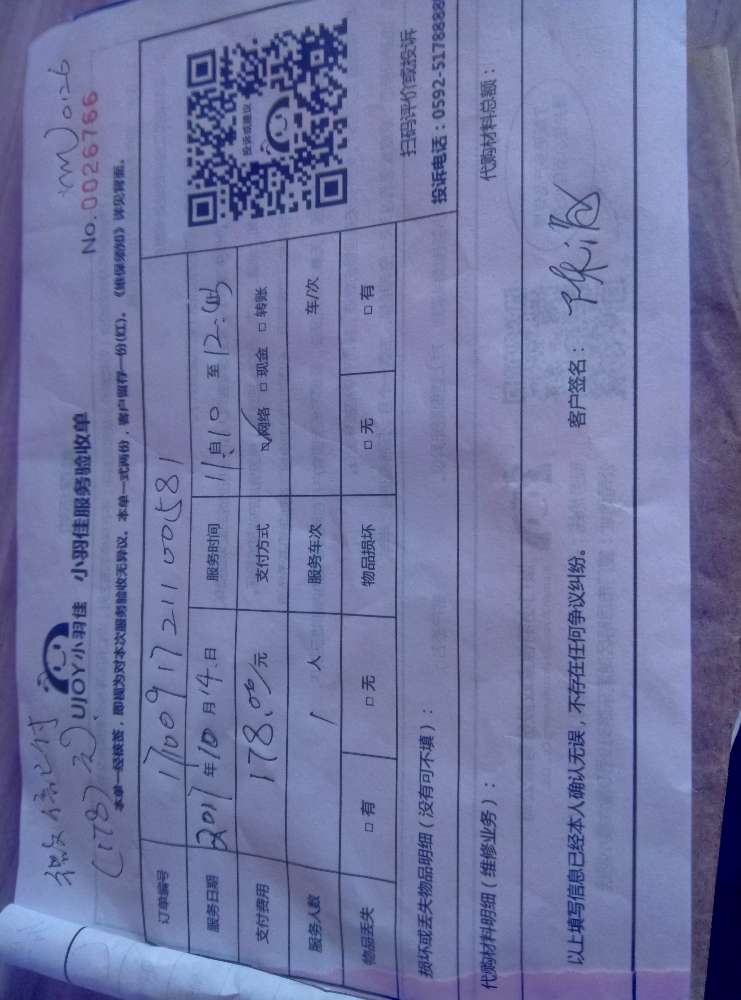 微信已付
(178元)
XM0126
UJOY小羽佳 小羽佳服务验收单
No.0026766
本单一经核签,即视为对本次服务验收无异议,本单一式两份,客户留存一份(红)。《维保须知》详见背面。
订单编号 1700917211 00581
服务日期 2017年10月14日 服务时间 11:10 至 12:40
支付费用 178.00元 支付方式 ☑网络 □现金 □转账
服务人数 1人 服务车次 车/次
物品丢失 □有 □无 物品损坏 □无 □有
投诉或建议
扫码评价或投诉
投诉电话:0592-5178888
损坏或丢失物品明细(没有可不填):
代购材料明细(维修业务): 代购材料总额:
以上填写信息已经本人确认无误,不存在任何争议纠纷。 客户签名: